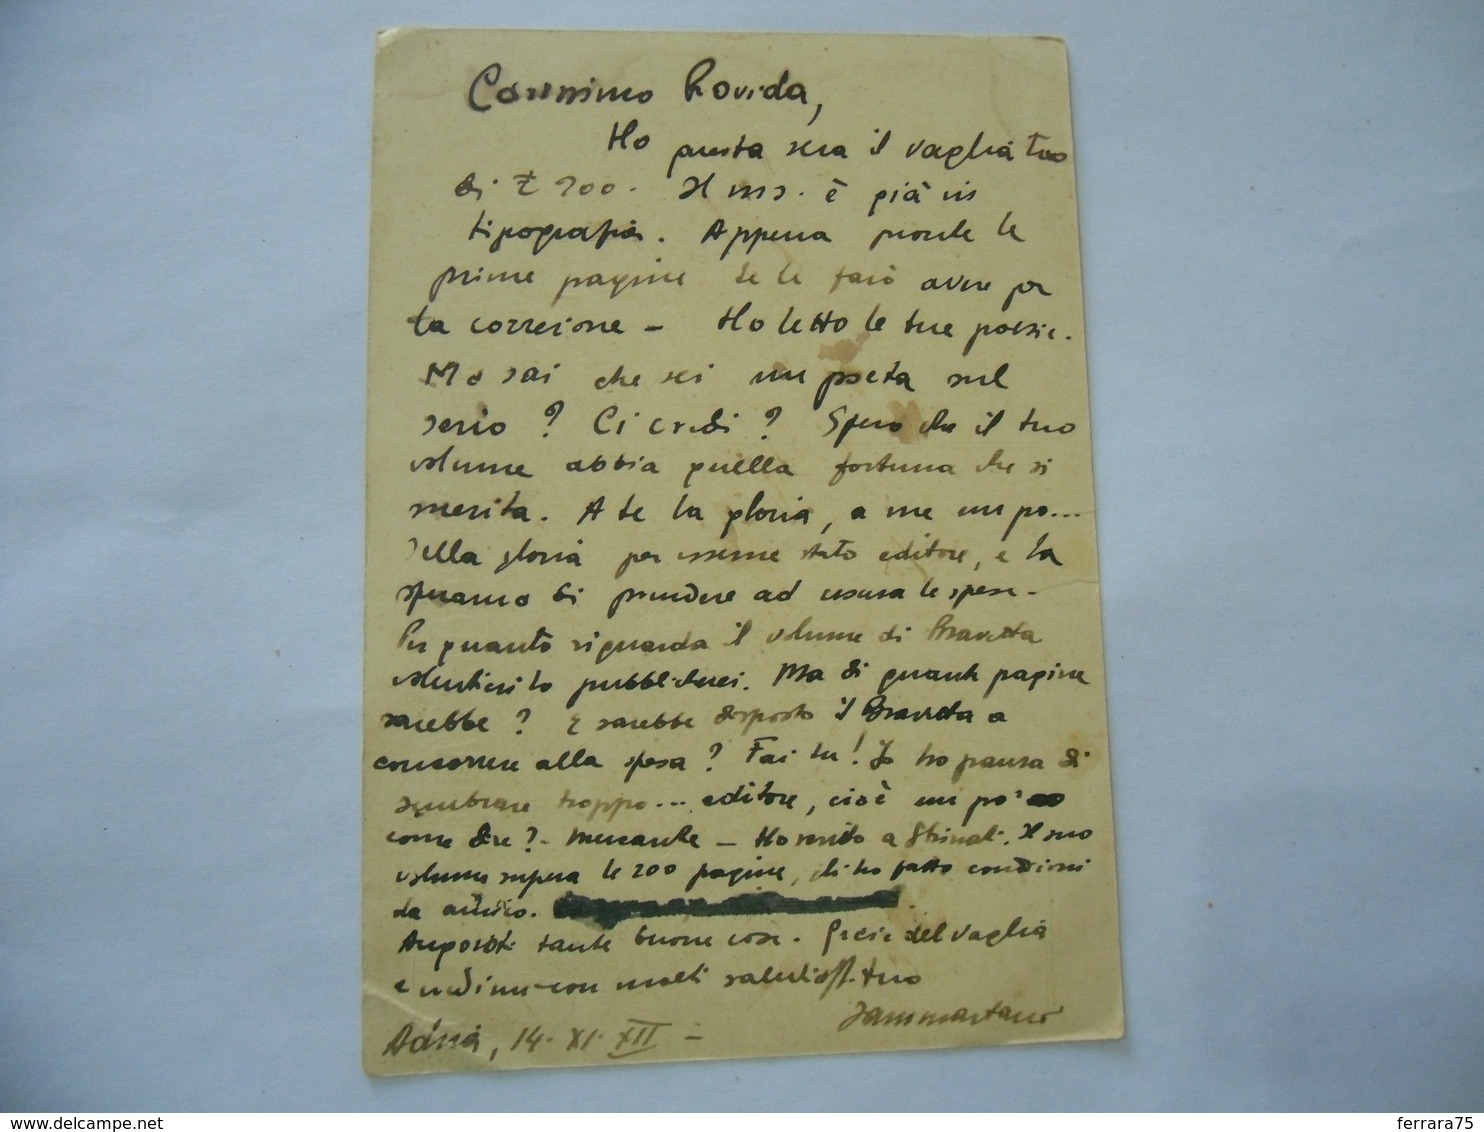 Carissimo Rovida,
Ho questa sera il vaglia tuo
di £ 200. Il ms. è già in
tipografia. Appena pronte le
prime pagine te le farò avere per
la correzione - Ho letto le tue poesie.
Ma sai che sei un poeta sul
serio? Ci credi? Spero che il tuo
volume abbia quella fortuna che si
merita. A te la gloria, a me un po...
della gloria per esserne stato editore, e la
speranza di prendere ad usura le spese.
Per quanto riguarda il volume di Bravetta
volentieri lo pubblicherei. Ma di quante pagine
sarebbe? E sarebbe disposto il Bravetta a
concorrere alla spesa? Fai tu! Io ho paura di
sembrare troppo... editore, cioè un po'
come dire?- mercante - Ho scritto a Strinati. Il suo
volume supera le 200 pagine, gli ho fatto condizioni
da amico.
Auguroti tante buone cose. Grazie del vaglia
e credimi con molti saluti aff. tuo
Jammartano
Adria, 14. XI. XII -
www.delcampe.net
ferrara75